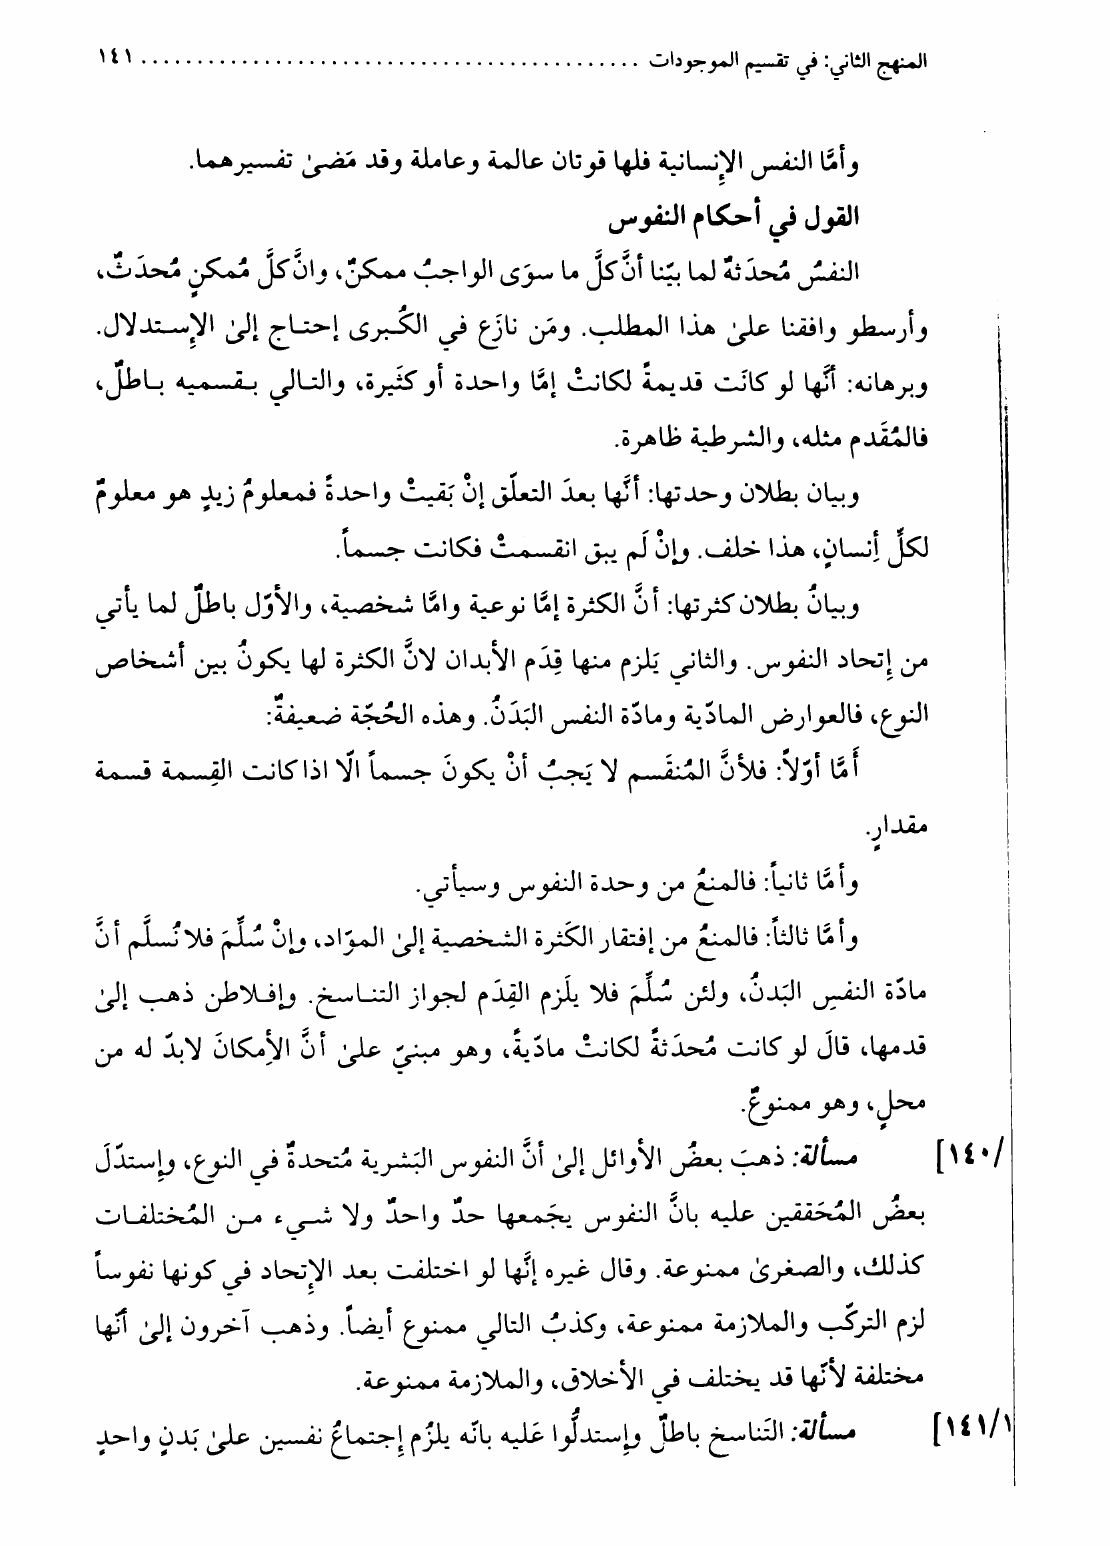 المنهج الثاني: في تقسيم الموجودات ............................................. ١٤١
وأمَّا النفس الإِنسانية فلها قوتان عالمة وعاملة وقد مَضىٰ تفسيرهما.
القول في أحكام النفوس
النفسُ مُحدَثةٌ لما بيّنا أنَّ كلَّ ما سوَى الواجبُ ممكنٌ، وانَّ كلَّ مُمكنٍ مُحدَثٌ،
وأرسطو وافقنا علىٰ هذا المطلب. ومَن نازَع في الكُبرى إحتاج إلىٰ الإِستدلال.
وبرهانه: أنَّها لو كانَت قديمةً لكانتْ إمَّا واحدة أو كثَيرة، والتالي بقسميه باطلٌ،
فالمُقَدم مثله، والشرطية ظاهرة.
وبيان بطلان وحدتها: أنَّها بعدَ التعلّق إنْ بَقيتْ واحدةً فمعلومُ زيدٍ هو معلومُ
لكلِّ إِنسانٍ، هذا خلف. وإنْ لَم يبق انقسمتْ فكانت جسماً.
وبيانُ بطلان كثرتها: أنَّ الكثرة إمَّا نوعية وامَّا شخصية، والأوّل باطلٌ لما يأتي
من إتحاد النفوس. والثاني يَلزم منها قِدَم الأبدان لانَّ الكثرة لها يكونُ بين أشخاص
النوع، فالعوارض المادّية ومادّة النفس البَدَنُ. وهذه الحُجّة ضعيفةٌ:
أمَّا أوّلاً: فلأنَّ المُنقَسم لا يَجبُ أنْ يكونَ جسماً الّا اذا كانت القِسمة قسمة
مقدارٍ.
وأمَّا ثانياً: فالمنعُ من وحدة النفوس وسيأتي.
وأمَّا ثالثاً: فالمنعُ من إفتقار الكَثرة الشخصية إلىٰ الموّاد، وإنْ سُلِّمَ فلا نُسلَّم أنَّ
مادّة النفسِ البَدنُ، ولئن سُلِّمَ فلا يلَزم القِدَم لجواز التناسخ. وإفلاطن ذهب إلىٰ
قدمها، قالَ لو كانت مُحدَثةً لكانتْ مادّيةً، وهو مبنيّ علىٰ أنَّ الأِمكانَ لابدّ له من
محلٍ، وهو ممنوعٌ.
[١٤٠/ مسألة: ذهبَ بعضُ الأوائل إلىٰ أنَّ النفوس البَشرية مُتحدةٌ في النوع، وإستدّلَ
بعضُ المُحَققين عليه بانَّ النفوس يجَمعها حدٌ واحدٌ ولا شيء من المُختلفات
كذلك، والصغرىٰ ممنوعة. وقال غيره إنَّها لو اختلفت بعد الإِتحاد في كونها نفوساً
لزم التركّب والملازمة ممنوعة، وكذبُ التالي ممنوع أيضاً. وذهب آخرون إلىٰ أنّها
مختلفة لأنّها قد يختلف في الأخلاق، والملازمة ممنوعة.
[١٤١/١ مسألة: التَناسخ باطلٌ وإستدلُّوا عَليه بانّه يلزُم إجتماعُ نفسين علىٰ بَدنٍ واحدٍ